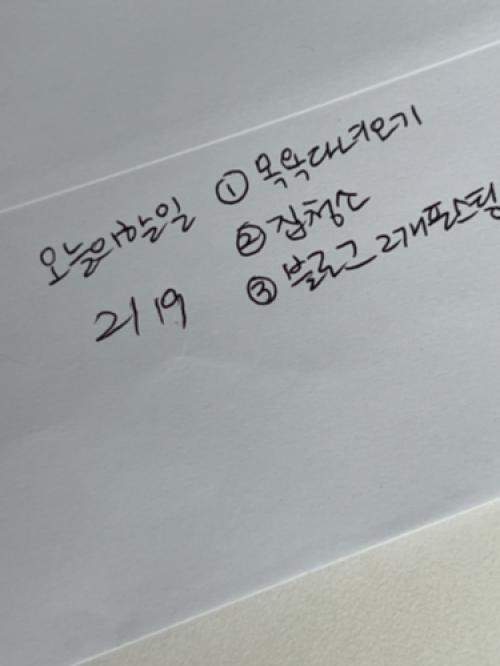 오늘의할일 ① 목욕다녀오기
2/19 ② 집청소
③ 블로그 2개포스팅